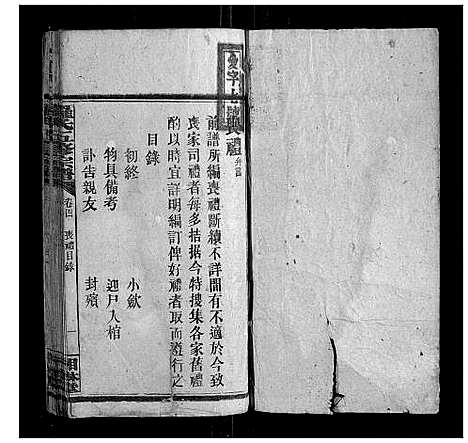 喪禮
前譜所編喪禮斷續不詳間有不適於今致
喪家司禮者每多拮据今特搜集各家舊禮
酌以時宜詳明編訂俾好禮者取而遵行之
目錄
初終　小歛
物具備考　迎尸入棺
訃告親友　封殯
卷四　喪禮目錄　一